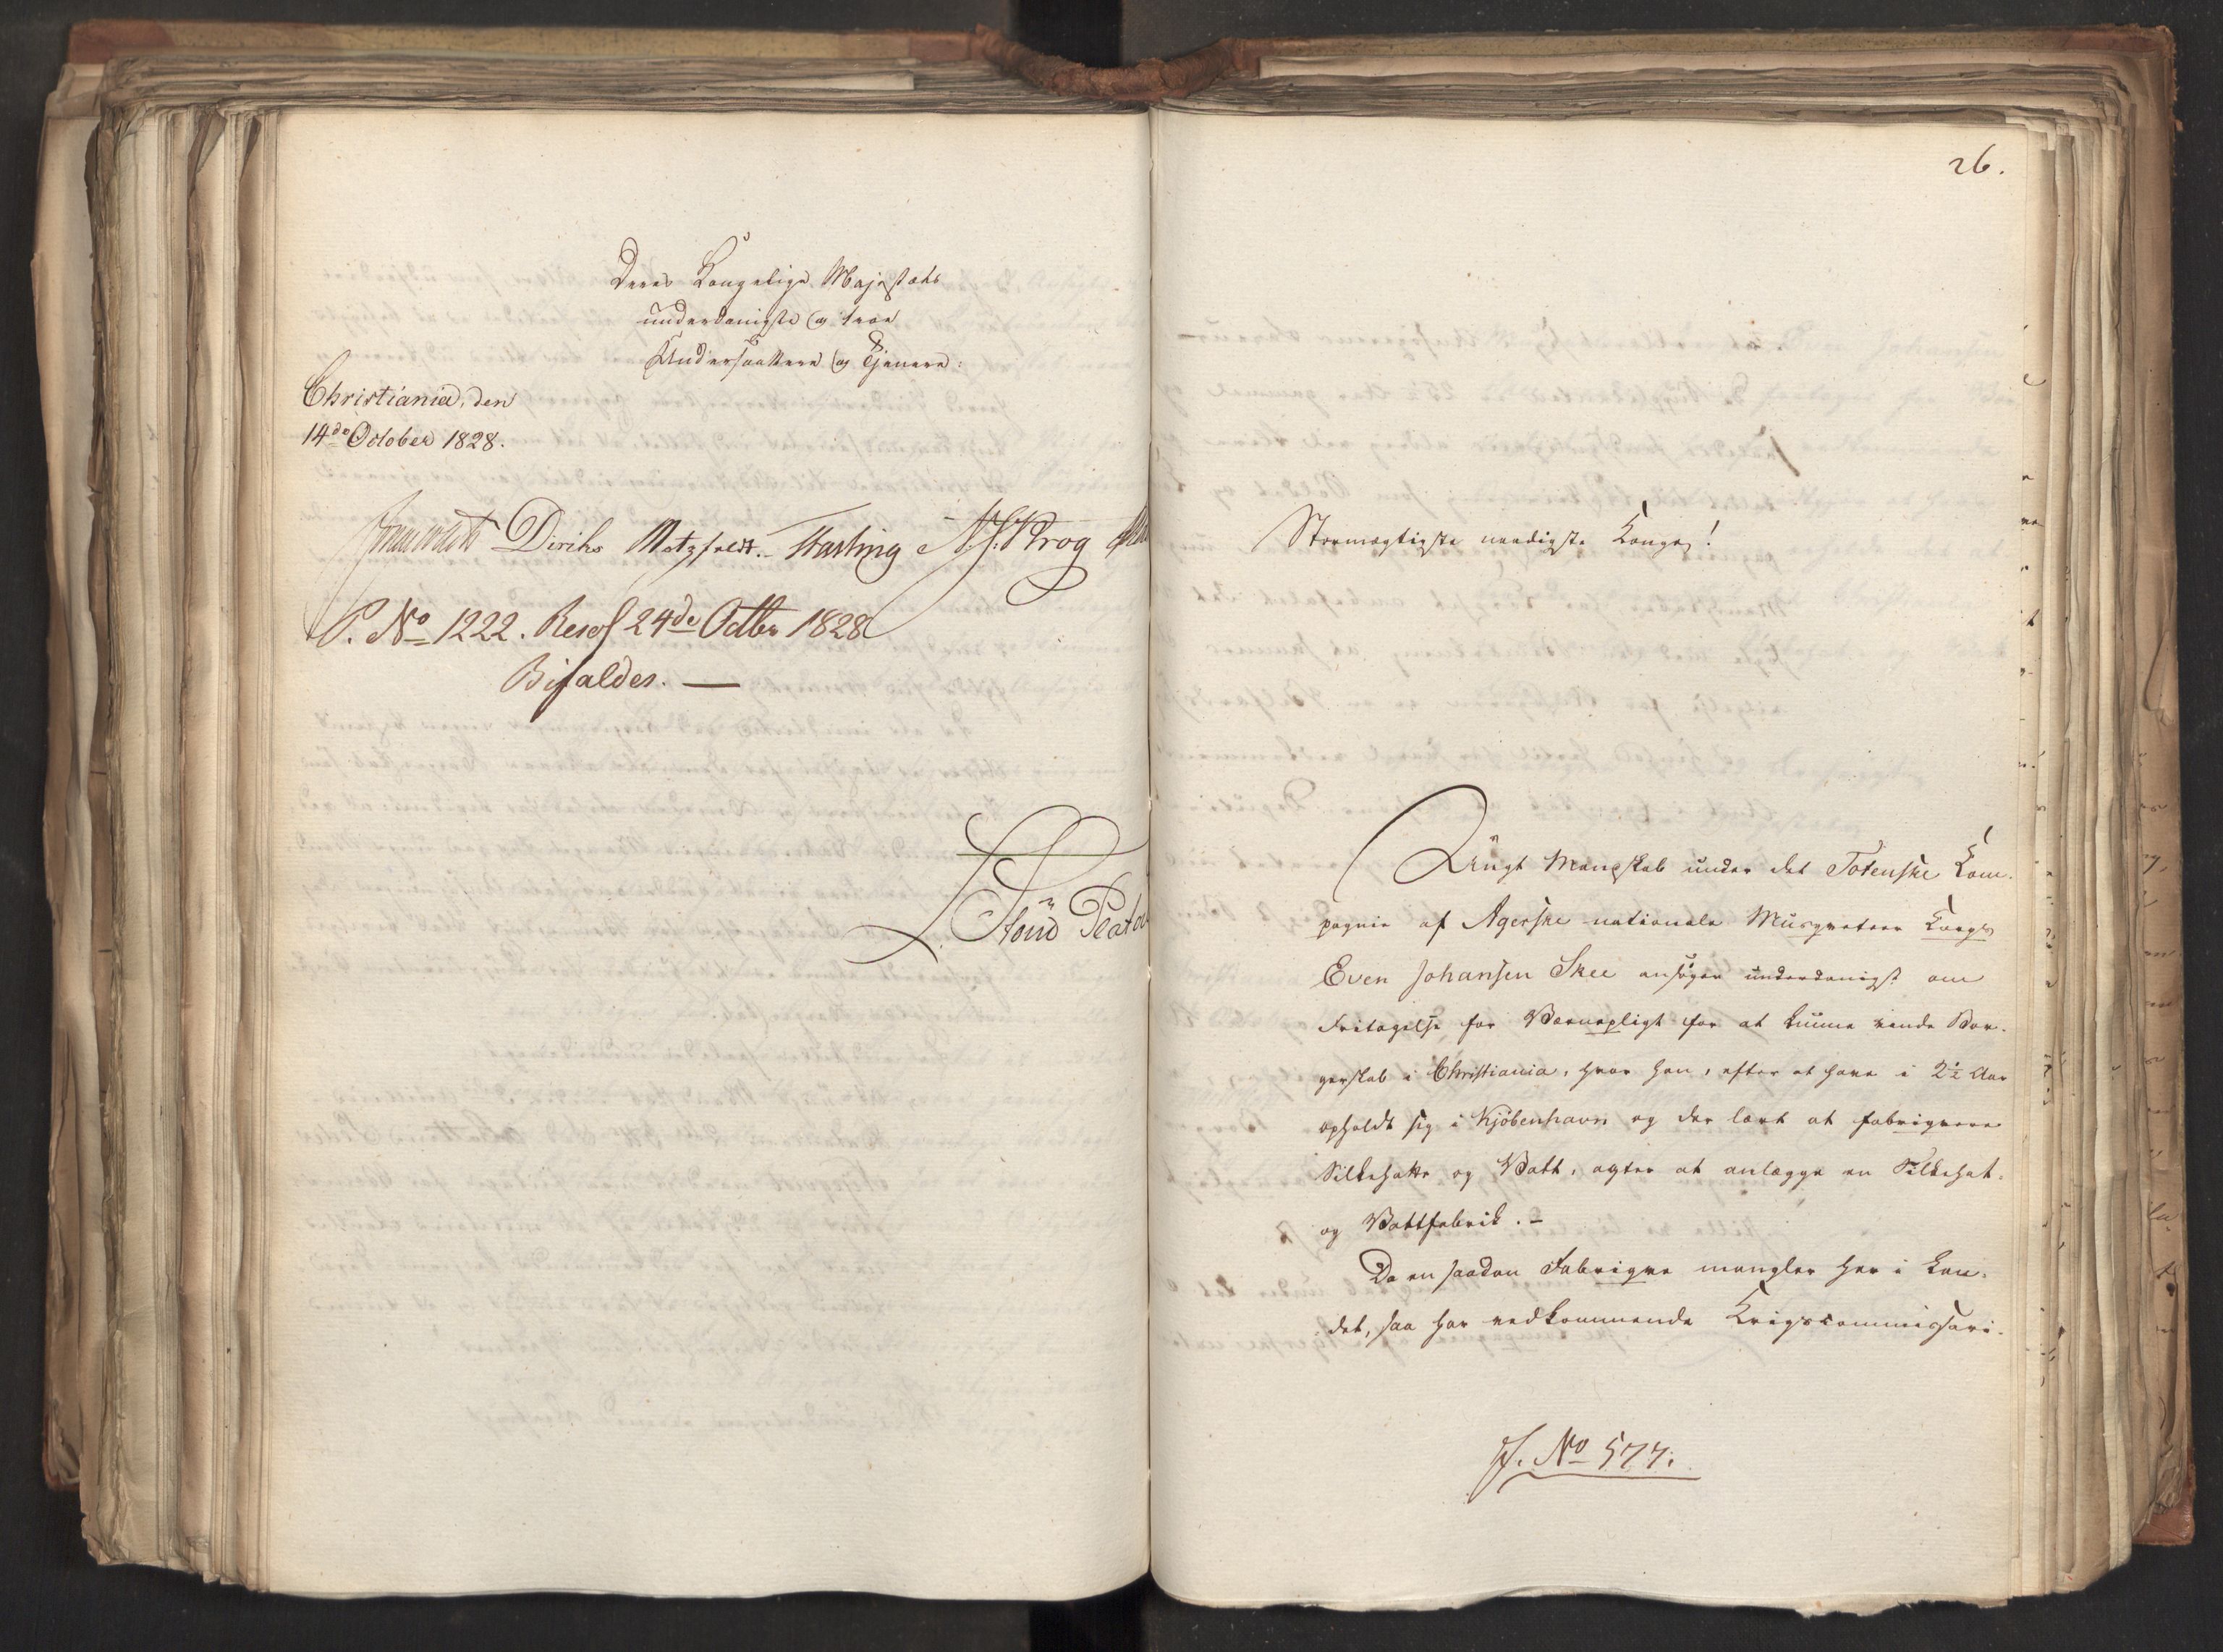 Deres Kongelige Majestæts
underdanigste og troe
Undersaattere og Tjenere:
Christiania, den
14de October 1828.
Diriks Motzfeldt. Fasting N. J. Krog
P. No 1222. Resol 24de Octbr 1828
Bifaldes. —
26.
Stormægtigste naadigste Konge!
Ungt Mandskab under det Totenske Kom-
pagnie af Agerske nationale Musqueteer Korps
Even Johansen Skee ansøger underdanigst om
Fritagelse for Værnepligt for at kunne vinde Bor-
gerskab i Christiania, hvor han, efter at have i 2½ Aar
opholdt sig i Kjöbenhavn og der lært at fabriquere
Silkehatte og Vatt, agter at anlægge en Silkehat-
og Vattfabrik. -
Da en saadan Fabrique mangler her i Lan-
det, saa har vedkommende Krigscommissari-
J. No 577.